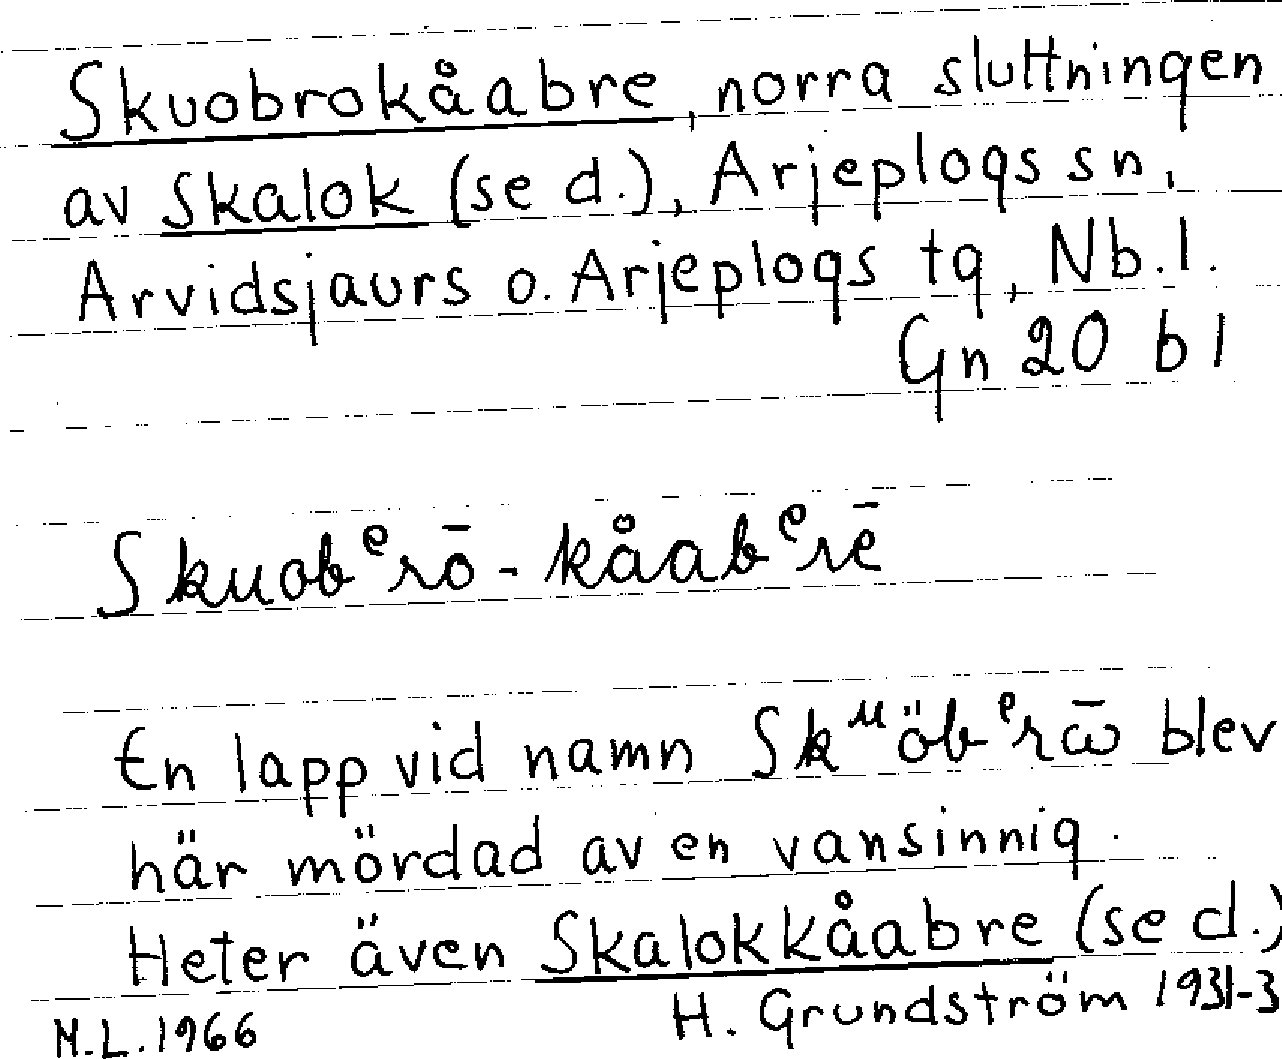 Skuobrokåabre, norra sluttningen
av Skalok (se d.), Arjeplogs sn,
Arvidsjaurs o. Arjeplogs tg, Nb.l.
Gn 20 b 1
Skuobᵉrō-kåabᵉrē
En lapp vid namn Skᵘöbᵉrω̄ blev
här mördad av en vansinnig.
Heter även Skalokkåabre (se d.)
H. Grundström 1931-3
M.L. 1966